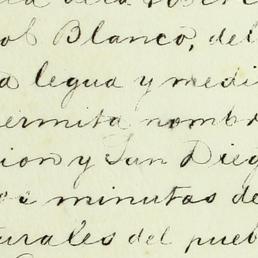 ol Blanco, del
a legua y medi
ermita nomb
ion y San Dieg
os minutos de
turales del pueb